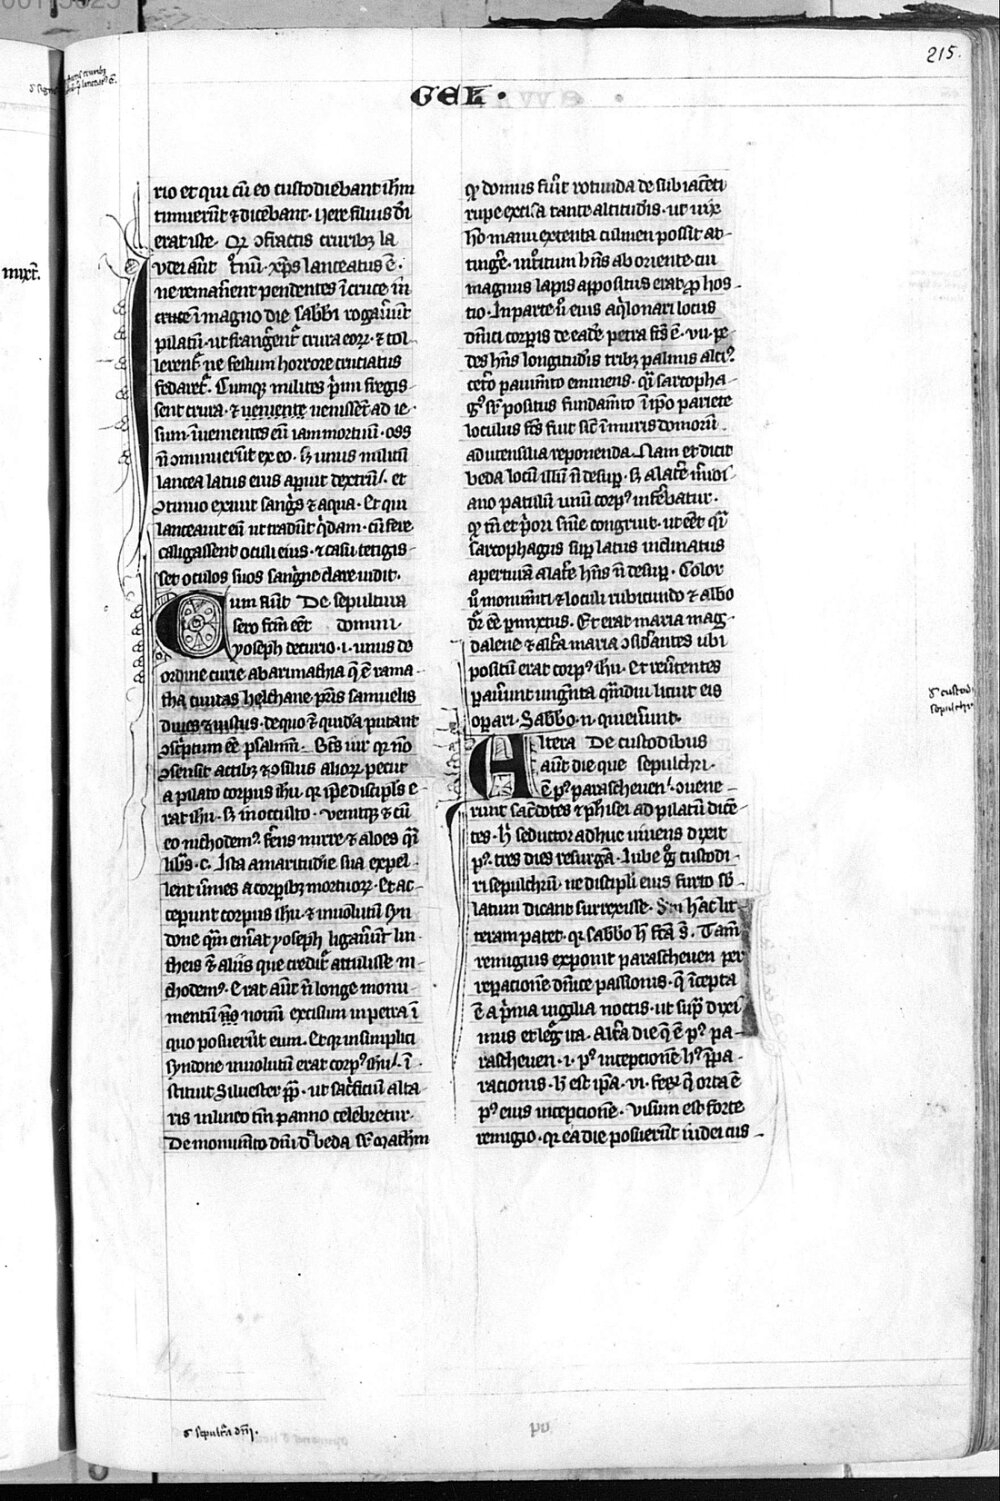 215.
GEL.
rio et qui cū eo custodiebant ihm
timuerūt ⁊ dicebant. Uere filius dī
erat iste. Qꝛ ɔfractis cruribꝫ la
tͦnū. xp̄s lanceatus ē.
ne remanerēt pendentes ī cruce in
cruce ī magno die sabbi rogauerūt
pilatū. ut frangerent᷑ crura eoꝝ. ⁊ tol
lerent᷑. ne festum horrore cruciatus
fedaret᷑. Cumqꝫ milites p̄mi fregis-
sent crura. ⁊ ueniente uenissēt ad ie-
sum. īuenientes eū iam mortuū. oss
n̄ ɔminuerūt ex eo. sꝫ unus militū
lancea latus eius aperuit dextrū. et
ɔtinuo exiuit sangͥs ⁊ aqua. Et qui
lanceauit eū ut tradūt qͥdam. cū fere
caligassent oculi eius. ⁊ casu tetigis-
set oculos suos sangͥne clare uidit.
Cum aūt De sepultura
sero factū eēt domini.
yoseph decurio .i. unus de
ordine curie ab arimathia q̄ ē rama-
tha ciuitas helchane pr̄is samuelis
diues ⁊ iustus. de quo ⁊ quidā putant
ɔscͥptum eē psalmū. Bt̄s uir qͥ nō
ɔsensit actibꝫ ⁊ ɔsilus alioꝝ. petiit
a pilato corpus ihu. qꝛ ip̄e discipls e-
rat ihu. sꝫ in occulto. uenitqꝫ ⁊ cū
eo nichodemꝰ. ferēs mirre ⁊ aloes q̄i
libs̄ .c. Ista amaritudīe sua expel-
lent ūmes a corpibꝫ mortuoꝝ. Et ac-
ceperunt corpus ihu. ⁊ inuoluūt syn
done quā em̄at yoseph ligauerūt lin-
theis ⁊ aliis que credit᷑ attulisse ni-
chodemꝰ. Erat aūt n̄ longe monu-
mentū nō nouū excisum in petra ī
quo posuerūt eum. Et qꝛ in simplici
syndone inuolutū erat corpꝰ ihu. ī-
stituit Siluester pp̄. ut sac̄ficiū alta-
ris in lineo tm̄ panno celebretur.
De monumēto dnī dͥ beda sr̄ marchm
qꝫ domus fuit rotunda de subiacēti
rupe excisa tante altitudīs. ut uix
hō manu extenta culmen possit at-
tingē. introitum hn̄s ab oriente cui
magnus lapis appositus erat ꝓ hos-
tio. In parte ū eius aqͥlonari locus
dn̄ici corpis de eadē petra fcs̄ ē. vii. pe-
des hn̄s longitudīs tribꝫ palmis alciꝰ.
cet̄o pauim̄to eminens. q̄i sarcopha-
gꝰ sr̄ positus fundam̄to ī ip̄o pariete
loculus fcs̄ fuit sic̄ ī muris domorū
ad utensilia reponenda. Nam et dicit
beda locū illū n̄ desup. sꝫ a lat̄e m̄idi-
ano patulū unū corpꝰ inferebatur.
qꝫ tn̄ et p̄ori sn̄ie congruit. ut eēt q̄i
sarcophagus supͥ latus inclinatus
aperturā a lat̄e hn̄s n̄ desup. Color
ū monum̄ti ⁊ loculi rubicundo ⁊ albo
dr̄ eē pmixtus. Et erat maria mag-
dalene ⁊ alt̄a maria ɔsiderantes ubi
positū erat corpꝰ ihu. Et reūtentes
parauerunt ungēta quādiu licuit eis
opari. Sabbo .n. quieuerunt.
Altera De custodibus
aūt die que sepulchri.
ē pꝰ parascheuen. ɔuene-
runt sac̄dotes ⁊ pharisei ad pilatū dicē-
tes. hͥ seductor adhuc uiuens dixit
pꝰ. tres dies resurgā. Iube gͦ custodi-
ri sepulchrū. ne discipli eius furto sb-
latum dicant surrexisse. Sm̄ hāc lit
teram patet. qꝛ sabbo h̄ fcā s̄. Tam̄
remigius exponit parascheuen pre
reparatione dn̄ice passionis. q̄ īcepta
ē a p̄ma uigilia noctis. ut suꝑ dixi
mus et leḡ ita. Alt̄a die q̄ ē pꝰ pa-
rascheuen .i. pꝰ inceptione hꝰ p̄pa-
rationis. h̄ est ip̄a .vi. fer̄. q̄ orta ē
pꝰ eius inceptione. Uisum est forte
remigio. qꝛ ea die posuerūt iudei cus
d' sepult̄a dnī.